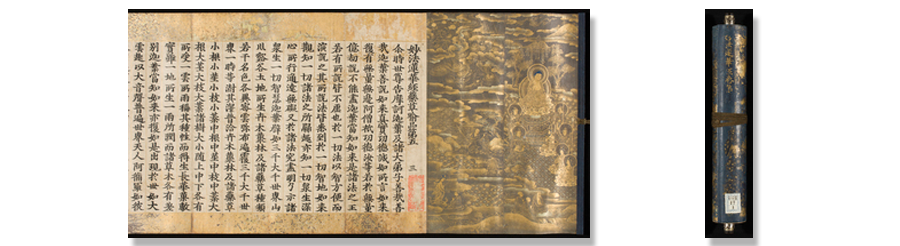 妙法蓮華經藥草喻品第五 三
尒時世尊告摩訶迦葉及諸大弟子善哉善
哉迦葉善說如來真實功德誠如所言如來
復有無量無邊阿僧祇功德汝等若於無量
億劫說不能盡迦葉當知如來是諸法之王
若有所說皆不虛也於一切法以智方便而
演說之其所說法皆悉到於一切智地如來
觀知一切諸法之所歸趣亦知一切眾生深
心所行通達無礙又於諸法究盡明了示諸
眾生一切智慧迦葉譬如三千大千世界山
川谿谷土地所生卉木叢林及諸藥草種類
若干名色各異密雲彌布遍覆三千大千世
界一時等澍其澤普洽卉木叢林及諸藥草
小根小莖小枝小葉中根中莖中枝中葉大
根大莖大枝大葉諸樹大小隨上中下各有
所受一雲所雨稱其種性而得生長華菓敷
實雖一地所生一雨所潤而諸草木各有差
別迦葉當知如來亦復如是出現於世如大
雲起以大音聲普遍世界天人阿脩羅如彼